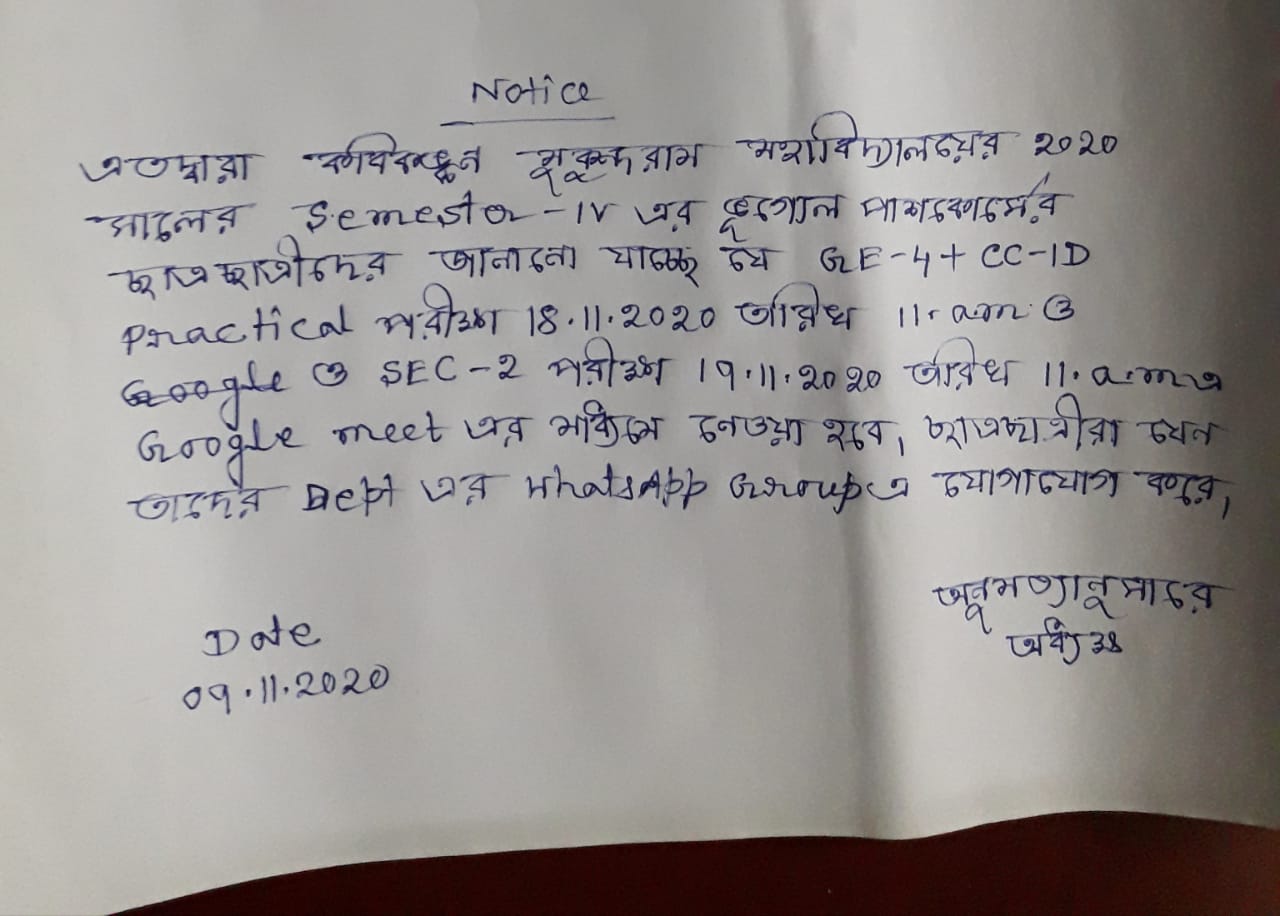 Notice
এতদ্বারা কবিকঙ্কন মুকুন্দরাম মহাবিদ্যালয়ের 2020
সালের Semester-IV এর ভূগোল পাশকোর্সের
ছাত্রছাত্রীদের জানানো যাচ্ছে যে GE-4+ CC-1D
Practical পরীক্ষা 18.11.2020 তারিখ 11.am. ও
Google ও SEC-2 পরীক্ষা 19.11.2020 তারিখ 11.a.m এ
Google meet এর মাধ্যমে নেওয়া হবে, ছাত্রছাত্রীরা যেন
তাদের Dept এর WhatsApp Group এ যোগাযোগ করে,
অনুমত্যানুসারে
অধ্যক্ষ
Date
09.11.2020